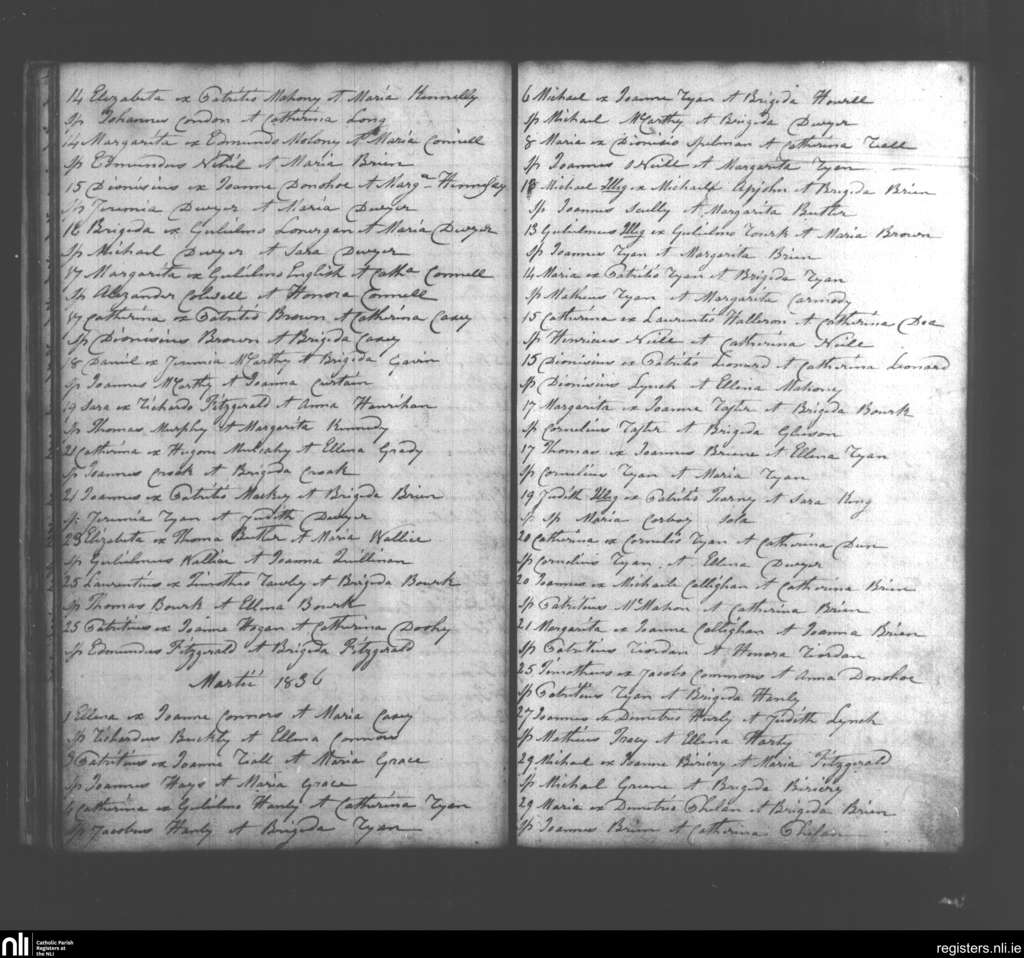 14 Elizabeta ex Patritio Mahony et Maria Kennelly
Sp Johannes Condon et Catherina Long
14 Margarita ex Edmundo Molony et Maria Connell
Sp Edmundus Nihil et Maria Brien
15 Dionisius ex Joanne Donohoe et Marg.a Hennssay
Sp Jeremia Dwyer et Maria Dwyer
16 Brigida ex Gulielmo Lonergan et Maria Dwyer
Sp Michael Dwyer et Sara Dwyer
17 Margarita ex Gulielmo English et Catha Connell
Sp Alexander Colwell et Honora Connell
17 Catherina ex Patritio Brown et Catherina Casey
Sp Dionisius Brown et Brigida Casey
18 Daniel ex Jeremia McCarthy et Brigida Gavin
Sp Joannes McCarthy et Joanna Curtain
19 Sara ex Richardo Fitzgerald et Anna Hanrihan
Sp Thomas Murphy et Margarita Kennedy
21 Catherina ex Hugone Mulcahy et Ellena Grady
Sp Joannes Croak et Brigida Croak
21 Joannes ex Patritio Mackey et Brigida Brien
Sp Jeremia Ryan et Judith Dwyer
23 Elizabeta ex Thoma Butler et Maria Wallice
Sp Gulielmus Wallice et Joanna Quillinan
25 Laurentius ex Timotheo Tawley et Brigida Bourk
Sp Thomas Bourk et Ellena Bourk
25 Patritius ex Joanne Hogan et Catherina Doohy
Sp Edmundus Fitzgerald et Brigida Fitzgerald
Martii 1836
1 Ellena ex Joanne Connors et Maria Casey
Sp Richardus Buckly et Ellena Connors
3 Patritius ex Joanne Riall et Maria Grace
Sp Joannes Hays et Maria Grace
4 Catherina ex Gulielmo Hanly et Catherina Ryan
Sp Jacobus Hanly et Brigida Ryan
6 Michael ex Joanne Ryan et Brigida Howell
Sp Michael McCarthy et Brigida Dwyer
8 Maria ex Dionisio Spelman et Catherina Riall
Sp Joannes Neille et Margarita Ryan
13 Michael Illeg ex Michaele Apjohn et Brigida Brien
Sp Joannes Scully et Margarita Butler
13 Gulielmus Illeg ex Gulielmo Rourk et Maria Brown
Sp Joannes Ryan et Margarita Brien
14 Maria ex Patritio Ryan et Brigida Ryan
Sp Matheus Ryan et Margarita Carmody
15 Catherina ex Laurentio Halloron et Catherina Dea
Sp Henricus Neille et Catherina Neille
15 Dionisius ex Patritio Leonard et Catherina Leonard
Sp Dionisius Lynch et Ellena Mahony
17 Margarita ex Joanne Tafter et Brigida Bourk
Sp Cornelius Tafter et Brigida Gleeson
17 Thomas ex Joannes Briene et Ellena Ryan
Sp Cornelius Ryan et Maria Ryan
19 Judith Illeg ex Patritio Tearny et Sara King
Sp Maria Corboy Sola
20 Catherina ex Cornelio Ryan et Catherina Dun
Sp Cornelius Ryan et Ellena Dwyer
20 Joannes ex Michaele Callighan et Catherina Brien
Sp Patritius McMahon et Catherina Brien
21 Margarita ex Joanne Callighan et Joanna Brien
Sp Patritius Riordan et Honora Riordan
25 Timotheus ex Jacobo Commons et Anna Donohoe
Sp Patritius Ryan et Brigida Hanly
27 Joannes ex Demetrio Harly et Judith Lynch
Sp Matheus Tracy et Ellena Harty
29 Michael ex Joanne Biriery et Maria Fitzgerald
Sp Michael Greene et Brigida Biriery
29 Maria ex Demetrio Phelan et Brigida Brien
Sp Joannes Brien et Catherina Phelan
nli
Catholic Parish
Registers at
the NLI
registers.nli.ie